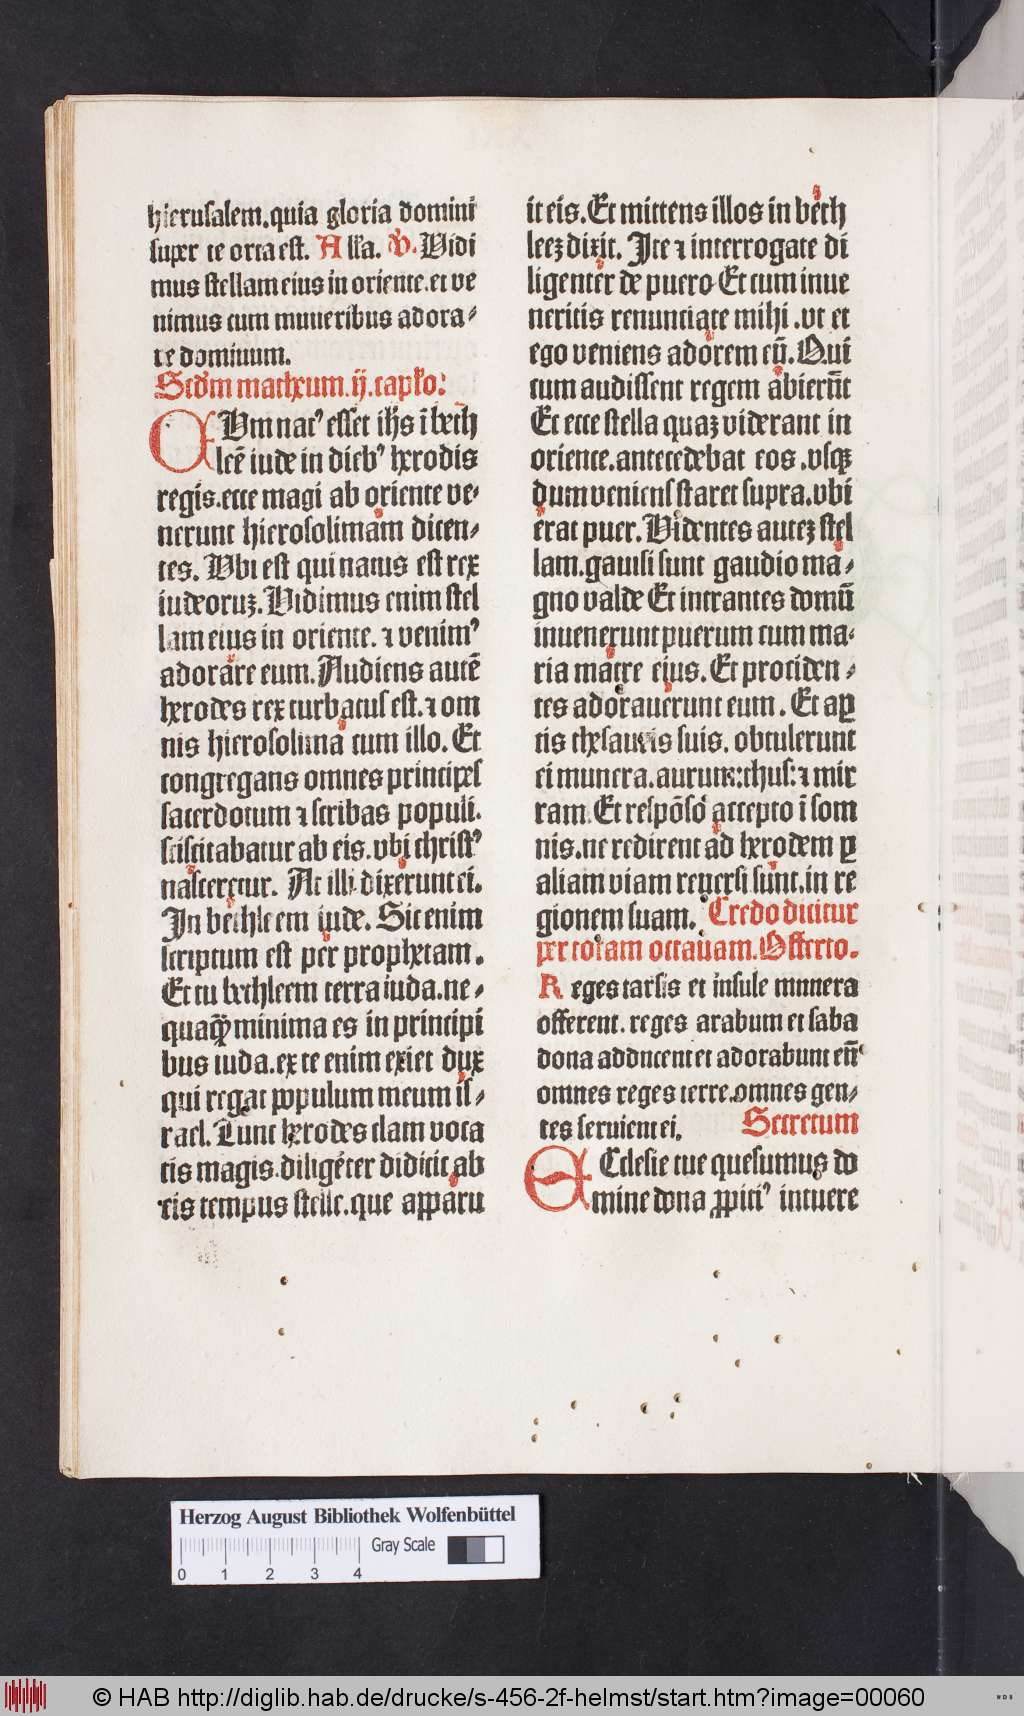 hierusalem.quia gloria domini
super te orta est. Alła. ꝟ. Vidi
mus stellam eius in oriente.et ve
nimus cum muneribus adora⸗
re dominum.
Scd̄m matheum.ij.capło:
CVm nat⁹ esset ih̄s ī beth
leē iude in dieb⁹ herodis
regis.ecce magi ab oriente ve⸗
nerunt hierosolimam dicen⸗
tes. Vbi est qui natus est rex
iudeoruꝫ. Vidimus enim stel
lam eius in oriente. ⁊ venim⁹
adorare eum. Audiens autē
herodes rex turbatus est.⁊ om
nis hierosolima cum illo. Et
congregans omnes principes
sacerdotum ⁊ scribas populi.
sciscitabatur ab eis.vbi christ⁹
nasceretur. At illi dixerunt ei.
In bethleem iude. Sic enim
scriptum est per prophetam.
Et tu bethleem terra iuda.ne⸗
quaꝙ̄ minima es in principi
bus iuda.ex te enim exiet dux
qui regat populum meum is⸗
rael. Tunc herodes clam voca
tis magis.diligēter didicit ab
eis tempus stelle.que apparu
it eis. Et mittens illos in beth
leeꝫ dixit. Ite ⁊ interrogate di
ligenter de puero Et cum inue
neritis renunciate mihi .vt et
ego veniens adorem eū. Qui
cum audissent regem abierūt
Et ecce stella quaꝫ viderant in
oriente.antecedebat eos .vsqꝫ
dum veniens staret supra.vbi
erat puer. Videntes auteꝫ stel
lam.gauisi sunt gaudio ma⸗
gno valde Et intrantes domū
inuenerunt puerum cum ma⸗
ria matre eius. Et prociden⸗
tes adorauerunt eum. Et aꝑ
tis thesauris suis. obtulerunt
ei munera.aurum:thus:⁊ mir
ram. Et respōsō accepto ī som
nis.ne redirent ad herodem ꝑ
aliam viam reuersi sunt.in re
gionem suam. Credo dicitur
per totam octauam. Offerto.
Reges tarsis et insule munera
offerent. reges arabum et saba
dona adducent et adorabunt eū
omnes reges terre.omnes gen⸗
tes seruient ei. Secretum
ECclesie tue quesumus do
mine dona ꝓpici⁹ intuere
Herzog August Bibliothek Wolfenbüttel
Gray Scale
0 1 2 3 4
© HAB http://diglib.hab.de/drucke/s-456-2f-helmst/start.htm?image=00060